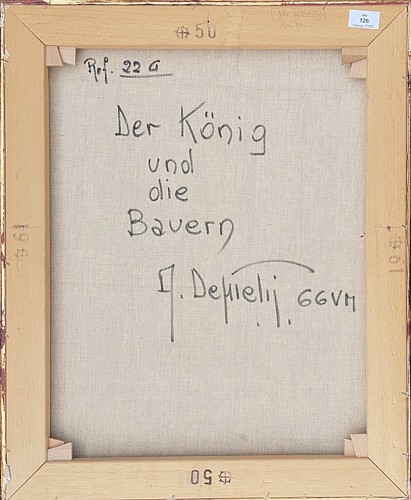 50
126
Ref. 22 G
Der König
und
die
Bauern
66VM
61
61
50